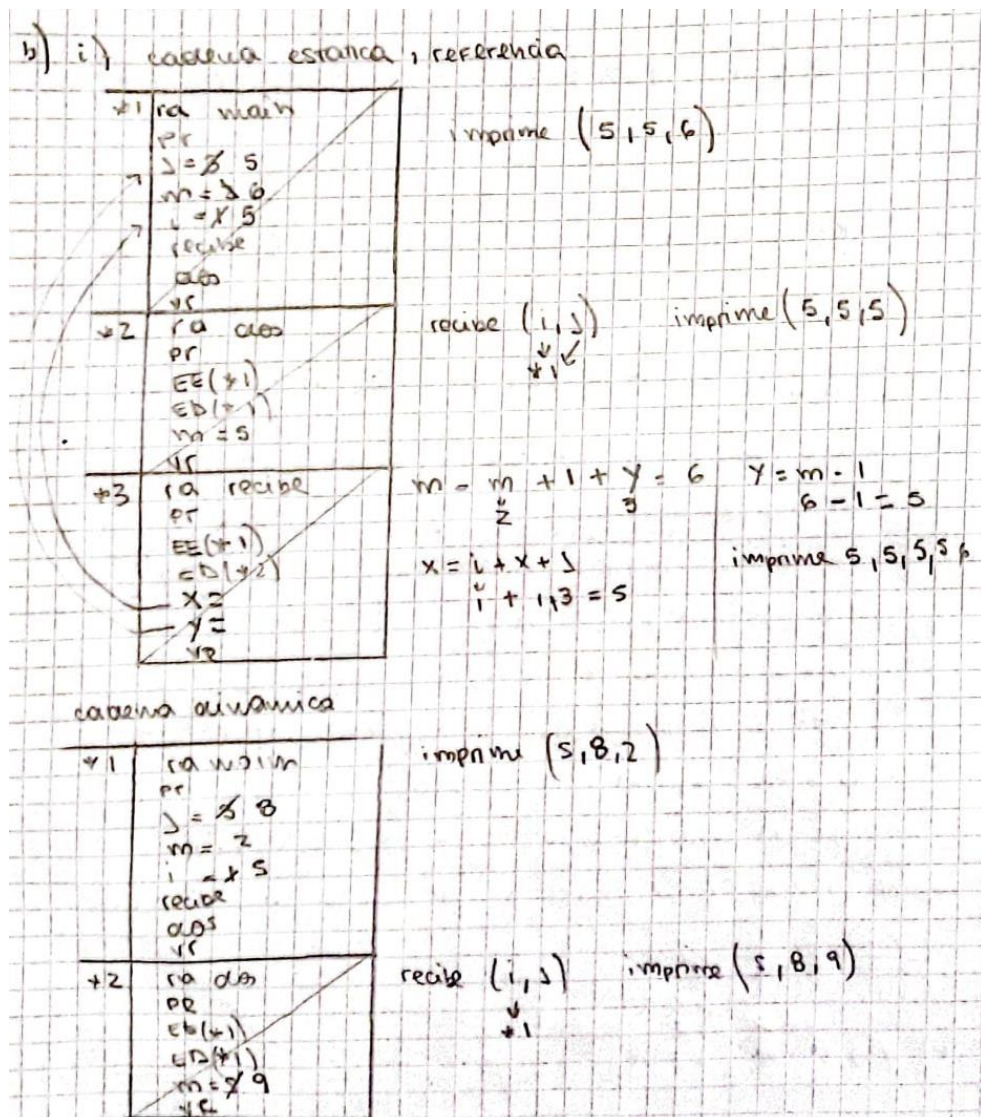 b) i) cadena estatica, referencia
*1 ra main
pr
J = 3 5
m = 2 6
i = 1 5
recibe
dos
vr
imprime (5,5,6)
*2 ra dos
pr
EE(*1)
ED(*1)
m = 5
vr
recibe (i,J) imprime (5,5,5)
*1
*3 ra recibe
pr
EE(*1)
ED(*2)
X =
Y =
VR
m = m + 1 + y = 6 Y = m - 1
2 3 6 - 1 = 5
x = i + x + J imprime 5,5,5,5 6
1 + 1,3 = 5
cadena dinamica
*1 ra main
pr
J = 3 8
m = 2
i = 1 5
recibe
dos
vr
imprime (5,8,2)
*2 ra dos
PR
ED(*1)
m = 5 9
vr
recibe (i,J) imprime (5,8,9)
*1